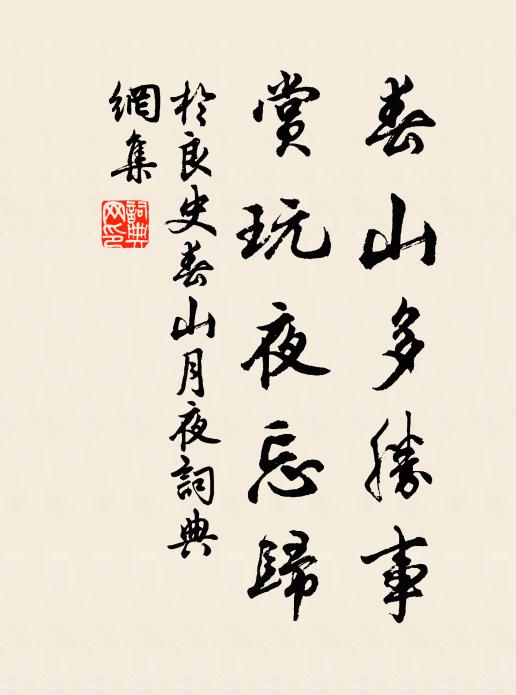 春山多勝事
賞玩夜忘歸
於良史春山月夜詞典
網集
詞典網印